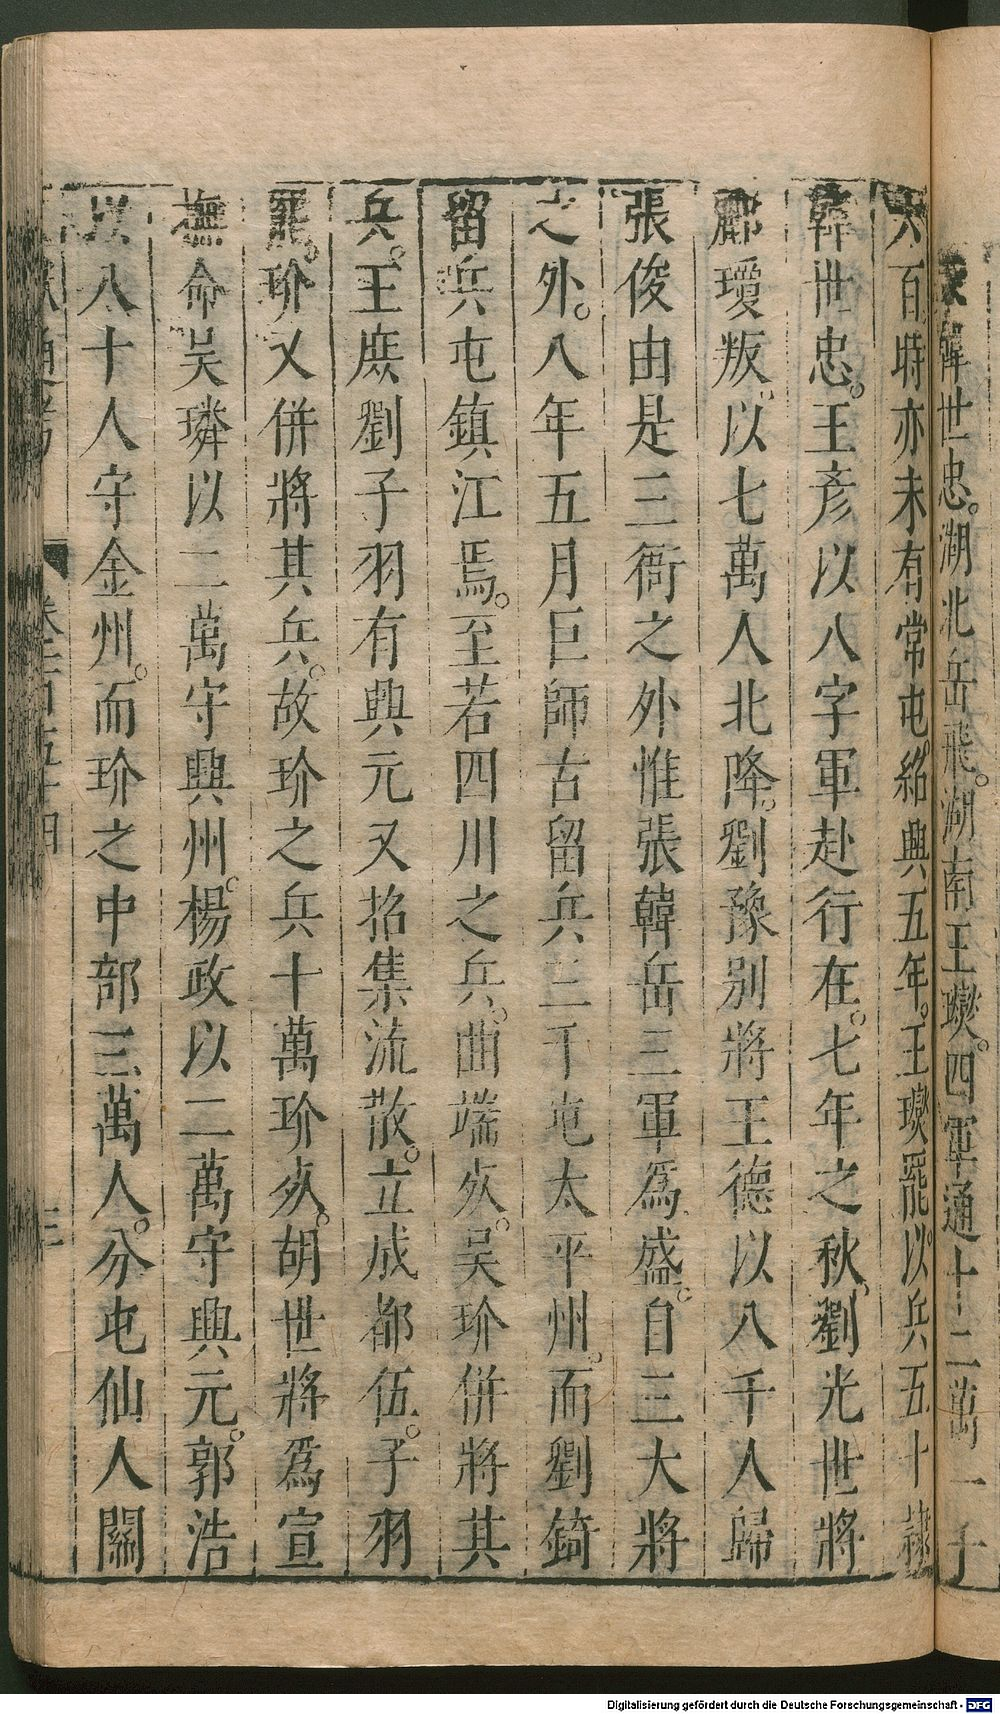 韓世忠。湖北岳飛。湖南王𤫉。四軍通十二萬一千
六百時亦未有常屯。紹興五年。王𤫉罷。以兵五十隸
韓世忠。王彥以八字軍赴行在。七年之秋。劉光世將
酈瓊叛。以七萬人北降。劉豫別將王德以八千人歸
張俊由是三衙之外惟張韓岳三軍爲盛。自三大將
之外。八年五月巨師古留兵三千屯太平州。而劉錡
留兵屯鎮江焉。至若四川之兵。曲端死。吳玠併將其
兵。王庶劉子羽有興元又招集流散。立成都伍。子羽
罷。玠又併將其兵。故玠之兵十萬玠死。胡世將爲宣
撫命吳璘以二萬守興州。楊政以二萬守興元。郭浩
以八十人守金州。而玠之中部三萬人。分屯仙人關
通考 卷一百五十四 三
Digitalisierung gefördert durch die Deutsche Forschungsgemeinschaft - DFG